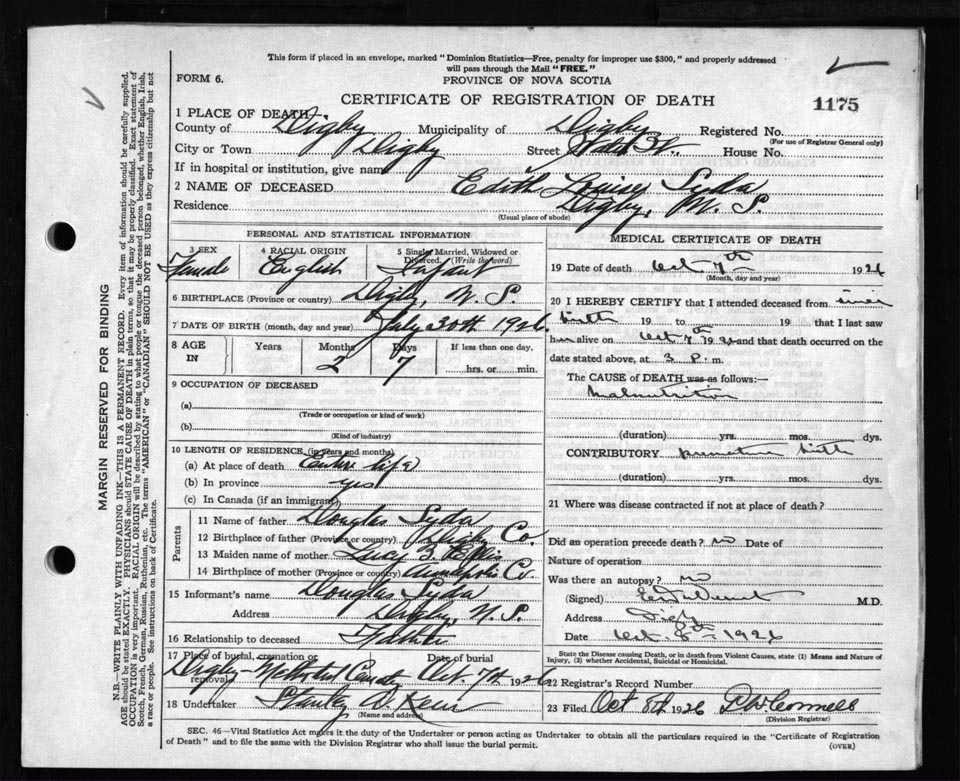 This form if placed in an envelope, marked "Dominion Statistics—Free, penalty for improper use $300," and properly addressed
will pass through the Mail "FREE."
FORM 6.
PROVINCE OF NOVA SCOTIA
CERTIFICATE OF REGISTRATION OF DEATH
1175
1 PLACE OF DEATH
County of Digby Municipality of Digby Registered No.
(For use of Registrar General only)
City or Town Digby Street House No.
If in hospital or institution, give name
2 NAME OF DECEASED Edith Louise Syda
Residence Digby, N. S.
(Usual place of abode)
PERSONAL AND STATISTICAL INFORMATION
3 SEX Female
4 RACIAL ORIGIN English
5 Single, Married, Widowed or Divorced. (Write the word) Infant
6 BIRTHPLACE (Province or country) Digby, N. S.
7 DATE OF BIRTH (month, day and year) July 30th 1926
8 AGE IN Years Months 2 Days 7 If less than one day, hrs. or min.
9 OCCUPATION OF DECEASED
(a)
(Trade or occupation or kind of work)
(b)
(Kind of industry)
10 LENGTH OF RESIDENCE (in years and months)
(a) At place of death entire life
(b) In province yes
(c) In Canada (if an immigrant)
Parents
11 Name of father Douglas Syda
12 Birthplace of father (Province or country) Digby Co.
13 Maiden name of mother Lucy
14 Birthplace of mother (Province or country) Annapolis Co.
15 Informant's name Douglas Syda
Address Digby, N. S.
16 Relationship to deceased Father
17 Place of burial, cremation or removal Date of burial
Digby Methodist Oct. 7th 1926
18 Undertaker Stanley
(Name and address)
MEDICAL CERTIFICATE OF DEATH
19 Date of death Oct 7th 1926
(Month, day and year)
20 I HEREBY CERTIFY that I attended deceased from since
birth 19 to 19 that I last saw
h alive on Oct 7th 1926 and that death occurred on the
date stated above, at 3 p. m.
The CAUSE of DEATH was as follows:—
Malnutrition
(duration) yrs. mos. dys.
CONTRIBUTORY premature birth
(duration) yrs. mos. dys.
21 Where was disease contracted if not at place of death?
Did an operation precede death? no Date of
Nature of operation
Was there an autopsy? no
(Signed) M.D.
Address Digby
Date Oct. 8th 1926
State the Disease causing Death, or in death from Violent Causes, state (1) Means and Nature of
Injury, (2) whether Accidental, Suicidal or Homicidal.
22 Registrar's Record Number
23 Filed Oct 8th 1926
(Division Registrar)
SEC. 46—Vital Statistics Act makes it the duty of the Undertaker or person acting as Undertaker to obtain all the particulars required in the "Certificate of Registration
of Death" and to file the same with the Division Registrar who shall issue the burial permit.
(OVER)
MARGIN RESERVED FOR BINDING
N.B.—WRITE PLAINLY WITH UNFADING INK—THIS IS A PERMANENT RECORD. Every item of information should be carefully supplied.
AGE should be stated EXACTLY. PHYSICIANS should STATE CAUSE OF DEATH in plain terms, so that it may be properly classified. Exact statement of
OCCUPATION is very important. RACIAL ORIGIN will be described by stating to what people or tongue the deceased person belonged, whether English, Irish,
Scotch, French, German, Russian, Ruthenian, etc. The terms "AMERICAN" or "CANADIAN" SHOULD NOT BE USED as they express citizenship but not
a race or people. See instructions on back of Certificate.